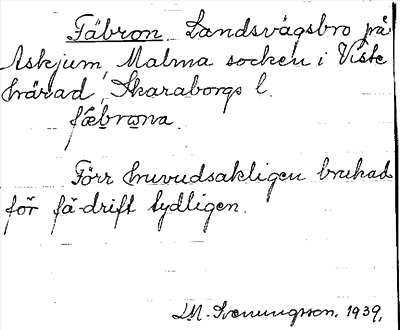 Fäbron Landsvägsbro på
Askjum, Malma socken i Viste
härad, Skaraborgs l.
fæ̱bro̱na.
Förr huvudsakligen brukad
för fä-drift tydligen.
Sveningsson. 1939.